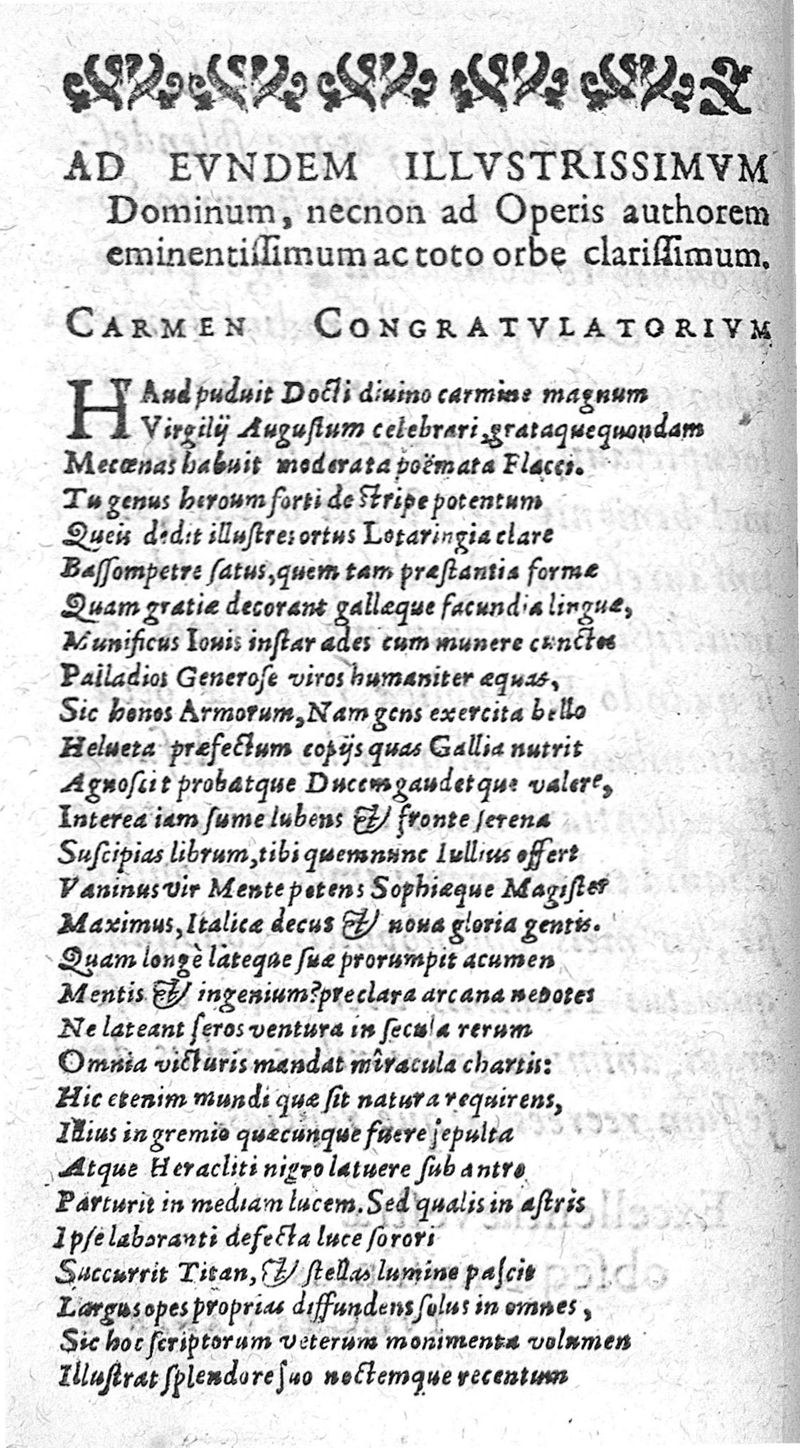 AD EVNDEM ILLVSTRISSIMVM
Dominum, necnon ad Operis authorem
eminentissimum ac toto orbe clarissimum.
CARMEN CONGRATVLATORIVM
HAud puduit Docti diuino carmine magnum
Virgilij Augustum celebrari, grataque quondam
Mecœnas habuit moderata poëmata Flacci.
Tu genus heroum forti de stripe potentum
Queis dedit illustres ortus Lotaringia clare
Bassompetre satus, quem tam præstantia formæ
Quam gratiæ decorant gallæque facundia linguæ,
Munificus Iouis instar ades cum munere cunctos
Palladios Generose viros humaniter æquas,
Sic honos Armorum, Nam gens exercita bello
Helueta præfectum copijs quas Gallia nutrit
Agnoscit probatque Ducem gaudetque valere,
Interea iam sume lubens & fronte serena
Suscipias librum, tibi quem nunc Iullius offert
Vaninus vir Mente potens Sophiæque Magister
Maximus, Italicæ decus & noua gloria gentis.
Quam longè latèque suæ prorumpit acumen
Mentis & ingenium? preclara arcana nepotes
Ne lateant seros ventura in secula rerum
Omnia victuris mandat mîracula chartis:
Hic etenim mundi quæ sit natura requirens,
Illius in gremio quæcunque fuere sepulta
Atque Heracliti nigro latuere sub antro
Parturit in mediam lucem. Sed qualis in astris
Ipse laboranti defecta luce sorori
Succurrit Titan, & stellas lumine pascit
Largus opes proprias diffundens solus in omnes,
Sic hoc scriptorum veterum monimenta volumen
Illustrat splendore suo noctemque recentum